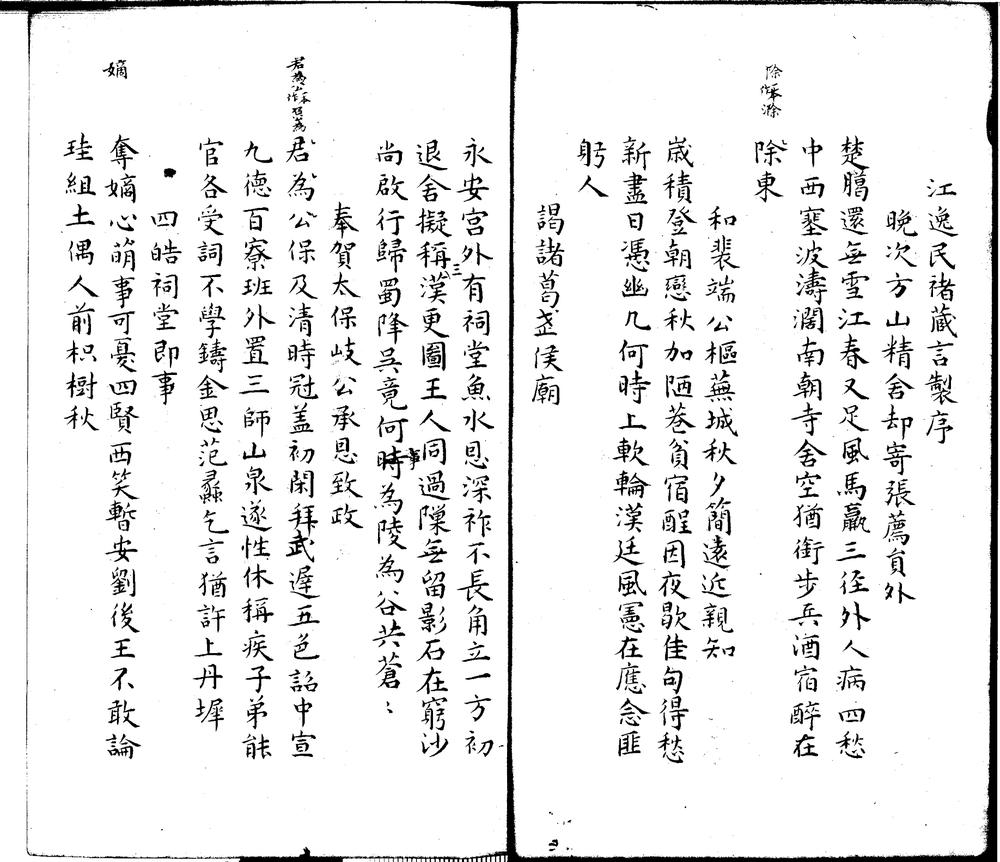 江逸民禇蔵言製序
晩次方山精舎却寄張薦員外
楚臈還無雪江春又足風馬羸三徑外人病四愁
中西塞波濤濶南朝寺舎空猶銜步兵酒宿醉在
除東
除一本作滁
和裴端公樞蕪城秋夕簡遠近親知
歳積登朝戀秋加陋巷貧宿酲因夜歇佳句得愁
新盡日憑幽几何時上軟輪漢廷風憲在應念匪
躬人
謁諸葛武侯廟
永安宮外有祠堂魚水恩深祚不長角立一方初
退舎擬稱三漢更圖王人同過隟無留影石在窮沙
尚啟行歸蜀降吳竟何時事為陵為谷共蒼〻
奉賀太保岐公承恩致政
君為公保及清時冠盖初閑拜武遲五色詔中宣
九德百寮班外置三師山泉遂性休稱疾子弟能
官各受詞不學鑄金思范蠡乞言猶許上丹墀
四皓祠堂即事
奪嫡心萌事可憂四賢西笑暫安劉後王不敢論
珪組土偶人前枳樹秋
嫡